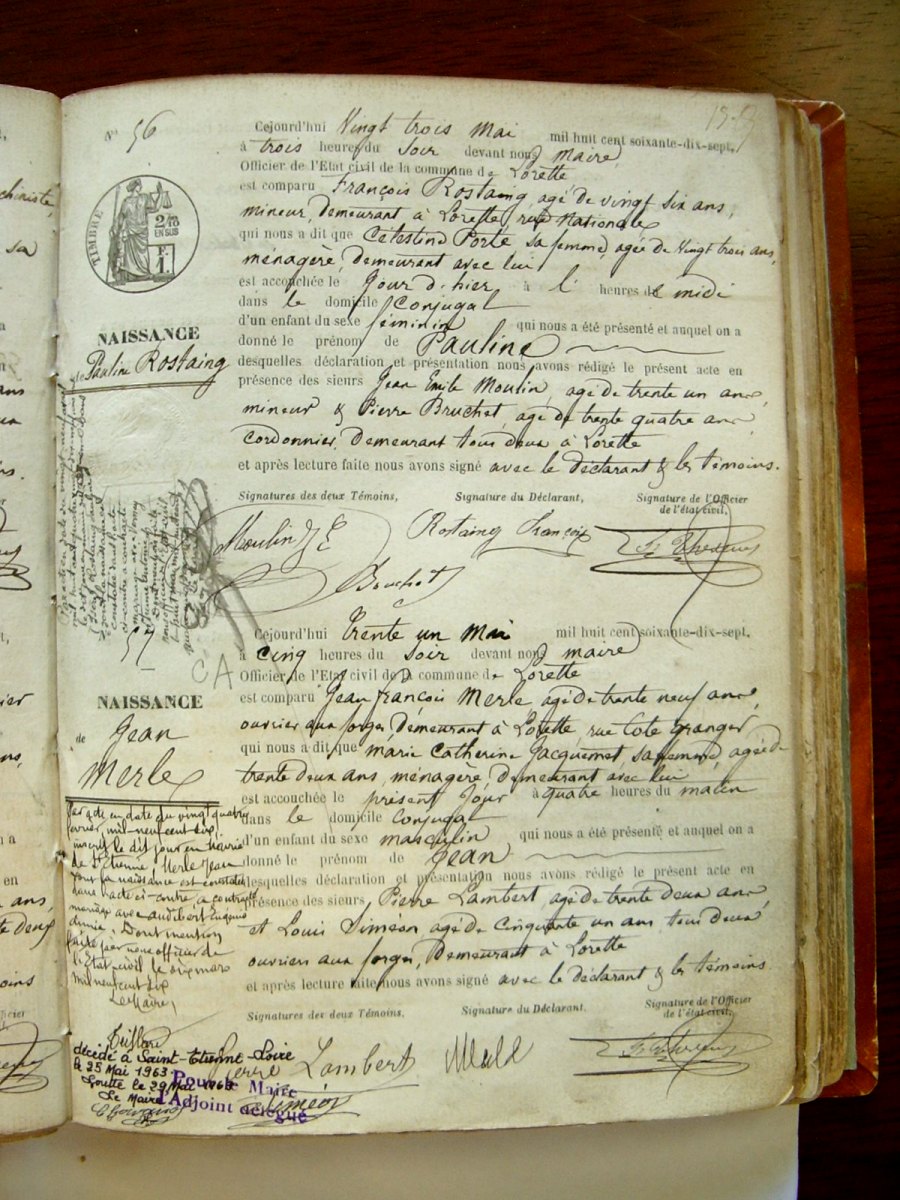 Nº 56
TIMBRE
2/10
EN SUS
F.
1.
NAISSANCE
de Pauline Rostaing
Cejourd'hui Vingt trois Mai mil huit cent soixante-dix-sept,
à trois heures du Soir devant nous maire
Officier de l'Etat civil de la commune de Lorette
est comparu François Rostaing, agé de vingt six ans,
mineur, demeurant à Lorette, rue Nationale
qui nous a dit que Celestine Porte sa femme, agée de Vingt trois ans,
ménagère, demeurant avec lui
est accouchée le Jour d'hier à l' heures de midi
dans le domicile Conjugal
d'un enfant du sexe féminin qui nous a été présenté et auquel on a
donné le prénom de Pauline
desquelles déclaration et présentation nous avons rédigé le présent acte en
présence des sieurs Jean Emile Moulin, agé de trente un ans,
mineur & Pierre Bruchet, agé de trente quatre ans,
Cordonnier, Demeurant tous deux à Lorette
et après lecture faite nous avons signé avec le déclarant & les témoins.
Signatures des deux Témoins, Signature du Déclarant, Signature de l'Officier
de l'état civil,
Moulin J E Rostaing François
Bruchet
Nº 57
CA
NAISSANCE
de Jean
Merle
Cejourd'hui Trente un Mai mil huit cent soixante-dix-sept,
à Cinq heures du Soir devant nous maire
Officier de l'Etat civil de la commune de Lorette
est comparu Jean François Merle, agé de trente neuf ans,
ouvrier aux forges, Demeurant à Lorette, rue Côte Granger
qui nous a dit que Marie Catherine Jacquemet, sa femme, agée de
trente deux ans, ménagère, demeurant avec lui
est accouchée le présent Jour à quatre heures du matin
dans le domicile Conjugal
d'un enfant du sexe masculin qui nous a été présenté et auquel on a
donné le prénom de Jean
desquelles déclaration et présentation nous avons rédigé le présent acte en
présence des sieurs Pierre Lambert agé de trente deux ans
et Louis Siméon agé de Cinquante un ans tous deux
ouvriers aux forges, Demeurant à Lorette
et après lecture faite nous avons signé avec le déclarant & les témoins
Signatures des deux Témoins, Signature du Déclarant, Signature de l'Officier
de l'état civil,
Pierre Lambert Merle
Siméon
Par acte en date du vingt quatre
février mil neuf cent dix,
inscrit le dit jour en mairie
de St Etienne, Merle Jean
dont la naissance est constatée
dans l'acte ci-contre a contracté
mariage avec Audibert Eugénie
Dont mention
faite par nous officier de
l'Etat civil le dix mars
mil neuf cent dix
Le Maire,
décédé à Saint-Etienne-Loire
le 25 Mai 1963.
Lorette le 29 Mai 1963
Le Maire
Pour le Maire
l'Adjoint délégué